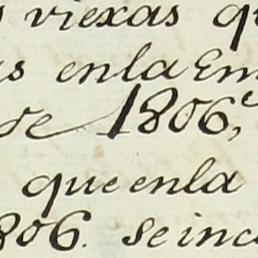 viexas
enla Em
de 1806,
que enla
1806. Se inc